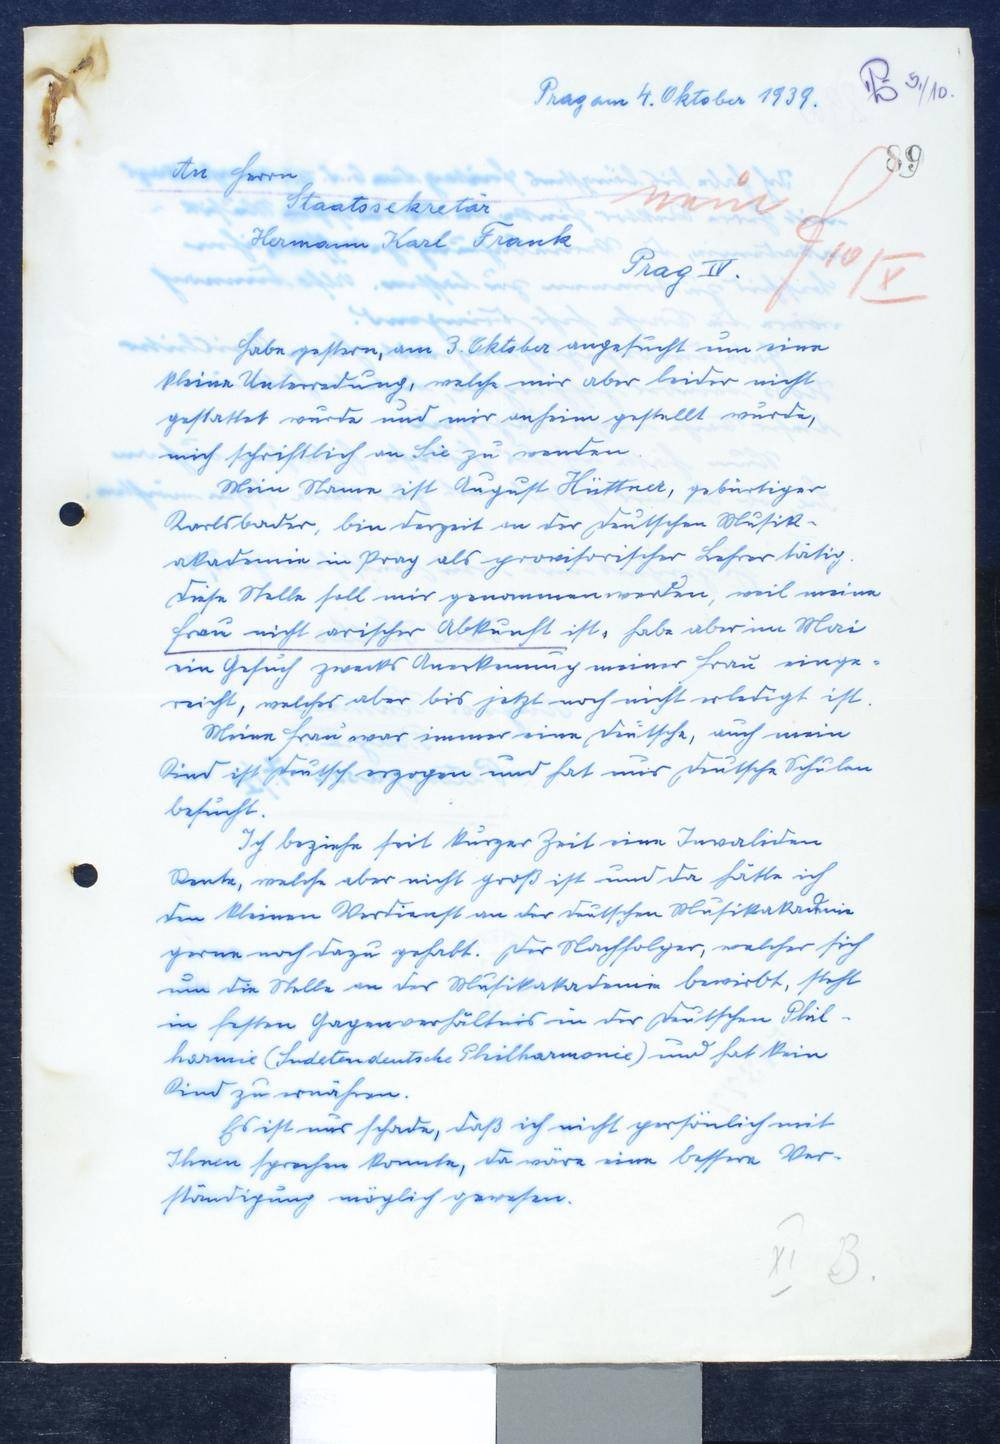 Prag am 4. Oktober 1939.
5./10.
89
An Herrn
Staatssekretär
Hermann Karl Frank
Prag IV.
nein
10/X
Habe gestern, am 3. Oktober angesucht um eine
kleine Unterredung, welche mir aber leider nicht
gestattet wurde und mir anheim gestellt wurde,
mich schriftlich an Sie zu wenden.
Mein Name ist August Hüttner, gebürtiger
Karlsbader, bin derzeit an der Deutschen Musik-
akademie in Prag als provisorischer Lehrer tätig.
Diese Stelle soll mir genommen werden, weil meine
Frau nicht arischer Abkunft ist, habe aber im Mai
ein Gesuch zwecks Anerkennung meiner Frau einge-
reicht, welches aber bis jetzt noch nicht erledigt ist.
Meine Frau war immer eine Deutsche, auch mein
Kind ist Deutsch erzogen und hat nur Deutsche Schulen
besucht.
Ich beziehe seit kurzer Zeit eine Invaliden
Rente, welche aber nicht groß ist und da hätte ich
den kleinen Verdienst an der Deutschen Musikakademie
gerne noch dazu gehabt. Der Nachfolger, welcher sich
um die Stelle an der Musikakademie bewirbt, steht
in festen Gagenverhältnis in der Deutschen Phil-
harmie (Sudetendeutsche Philharmonie) und hat kein
Kind zu ernähren.
Es ist nur schade, daß ich nicht persönlich mit
Ihnen sprechen konnte, da wäre eine bessere Ver-
ständigung möglich gewesen.
XI B.